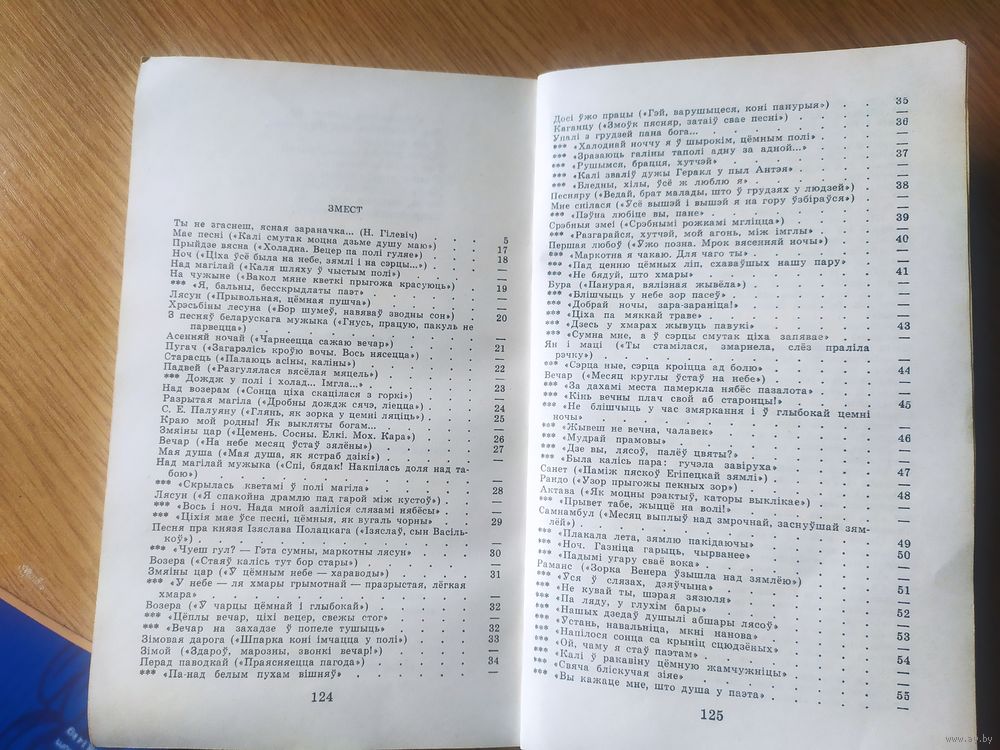 ЗМЕСТ
Ты не згаснеш, ясная зараначка... (Н. Гілевіч) . . 5
Мае песні («Калі смутак моцна дзьме душу маю») . . 17
Прыйдзе вясна («Холадна. Вецер па полі гуляе») . . 18
Ноч («Ціха ўсё была на небе, зямлі і на сэрцы...») . . —
Над магілай («Каля шляху ў чыстым полі») . . . —
На чужыне («Вакол мяне кветкі прыгожа красуюць») . 19
*** «Я, бальны, бесскрыдлаты паэт» . . . . —
Лясун («Прывольная, цёмная пушча») . . . . —
Хрэсьбіны лесуна («Бор шумеў, навяваў зводны сон») . 20
З песняў беларускага мужыка («Гнусь, працую, пакуль не
парвецца») . . . . —
Асенняй ночай («Чарнеецца сажаю вечар») . . . 21
Пугач («Загарэлісь кроўю вочы. Вось нясецца») . . —
Старасць («Палаюць асіны, каліны») . . . . 22
Падвей («Разгулялася вясёлая мяцель») . . . . —
*** Дождж у полі і холад... Імгла... . . . . —
Над возерам («Сонца ціха скацілася з горкі») . . . 23
Разрытая магіла («Дробны дождж сячэ, ліецца») . . 24
С. Е. Палуяну («Глянь, як зорка у цемні ляціць») . . 25
Краю мой родны! Як выкляты богам... . . . . —
Змяіны цар («Цемень. Сосны. Елкі. Мох. Кара») . . 26
Вечар («На небе месяц ўстаў зялёны») . . . . 27
Мая душа («Мая душа, як ястраб дзікі») . . . . —
Над магілай мужыка («Спі, бядак! Накпілась доля над та-
бою») . . . . —
*** «Скрылась кветамі ў полі магіла» . . . . 28
Лясун («Я спакойна драмлю пад гарой між кустоў») . . —
*** «Вось і ноч. Нада мной заліліся слязамі нябёсы» . —
*** «Ціхія мае ўсе песні, цёмныя, як вугаль чорны» . 29
Песня пра князя Ізяслава Полацкага («Ізяслаў, сын Васіль-
коў») . . . . —
*** «Чуеш гул? — Гэта сумны, маркотны лясун» . . 30
Возера («Стаяў калісь тут бор стары») . . . . —
Змяіны цар («У цёмным небе — хараводы») . . . 31
*** «У небе — ля хмары грымотнай — празрыстая, лёгкая
хмара» . . . . —
Возера («У чарцы цёмнай і глыбокай») . . . . 32
*** «Цёплы вечар, ціхі вецер, свежы стог» . . . —
*** «Вечар на захадзе ў попеле тушыць» . . . . 32
Зімовая дарога («Шпарка коні імчацца у полі») . . 33
Зімой («Здароў, марозны, звонкі вечар!») . . . . —
Перад паводкай («Праясняецца пагода») . . . . 34
*** «Па-над белым пухам вішняў» . . . . —
124
Досі ўжо працы («Гэй, варушыцеся, коні панурыя») . . 35
Каганцу («Змоўк пясняр, затаіў свае песні») . . . —
Упалі з грудзей пана бога... . . . . 36
*** «Халоднай ноччу я ў шырокім, цёмным полі» . . —
*** «Зразаюць галіны таполі адну за адной...» . . —
*** «Рушымся, брацця, хутчэй» . . . . 37
*** «Калі зваліў дужы Геракл у пыл Антэя» . . . —
*** «Бледны, хілы, ўсё ж люблю я» . . . . —
Песняру («Ведай, брат малады, што ў грудзях у людзей») 38
Мне снілася («Ўсё вышэй і вышэй я на гору ўзбіраўся») . —
*** «Пэўна любіце вы, пане» . . . . —
Срэбныя змеі («Срэбнымі рожкамі мгліцца») . . . 39
*** «Разгарайся, хутчэй, мой агонь, між імглы» . . —
Першая любоў («Ўжо позна. Мрок вясенняй ночы») . . 40
*** «Маркотна я чакаю. Для чаго ты» . . . . —
*** «Пад ценню цёмных ліп, схаваўшых нашу пару» . —
*** «Не бядуй, што хмары» . . . . 41
Бура («Панурая, вялізная жывёла») . . . . —
*** «Блішчыць у небе зор пасеў» . . . . —
*** «Добрай ночы, зара-зараніца!» . . . . —
*** «Ціха па мяккай траве» . . . . —
*** «Дзесь у хмарах жывуць павукі» . . . . 43
*** «Сумна мне, а ў сэрцы смутак ціха запявае» . . —
Ян і маці («Ты стамілася, змарнела, слёз праліла
рэчку») . . . . —
*** «Сэрца ные, сэрца кроіцца ад болю» . . . . 44
Вечар («Месяц круглы ўстаў на небе») . . . . —
*** «За дахамі места памеркла нябёс пазалота» . . —
*** «Кінь вечны плач свой аб старонцы!» . . . 45
*** «Не блішчыць у час змяркання і ў глыбокай цемні
ночы» . . . . —
*** «Жывеш не вечна, чалавек» . . . . —
*** «Мудрай прамовы» . . . . 46
*** «Дзе вы, лясоў, палёў цвяты?» . . . . —
*** «Была калісь пара: гучэла завіруха» . . . —
Санет («Паміж пяскоў Егіпецкай зямлі») . . . . 47
Рандо («Узор прыгожы пекных зор») . . . . —
Актава («Як моцны рэактыў, каторы выклікае») . . 48
*** «Прывет табе, жыццё на волі!» . . . . —
Самнамбул («Месяц выплыў над змрочнай, заснуўшай зям-
лёй») . . . . —
*** «Плакала лета, зямлю пакідаючы» . . . . 49
*** «Ноч. Газніца гарыць, чырванее» . . . . —
*** «Падымі угару сваё вока» . . . . 50
Раманс («Зорка Венера ўзышла над зямлёю») . . . —
*** «Ўся ў слязах, дзяўчына» . . . . —
*** «Не кувай ты, шэрая зязюля» . . . . 51
*** «Па ляду, у глухім бары» . . . . —
*** «Нашых дзедаў душылі абшары лясоў» . . . 52
*** «Ўстань, навальніца, мкні нанова» . . . . —
*** «Напілося сонца са крыніц сцюдзёных» . . . 53
*** «Ой, чаму я стаў паэтам» . . . . —
*** «Калі ў ракавіну цёмную жамчужніцы» . . . 54
*** «Свяча бліскучая зіяе» . . . . —
*** «Вы кажаце мне, што душа у паэта» . . . . 55
—
125
www.ay.by